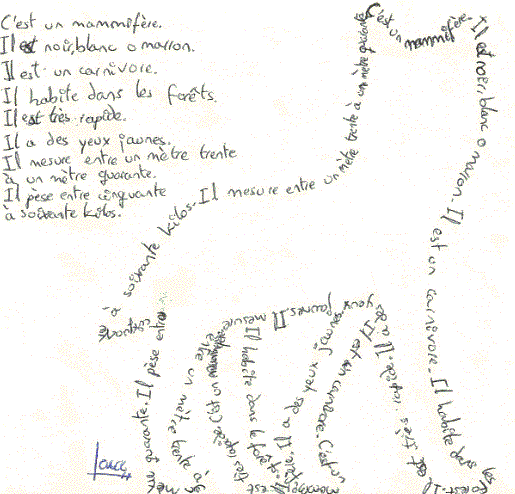 C'est un mammifère.
Il est noir, blanc o marron.
Il est un carnivore.
Il habite dans les forêts.
Il est très rapide.
Il a des yeux jaunes.
Il mesure entre un mètre trente
à un mètre quarante.
Il pèse entre cinquante
à soixante kilos.
C'est un mammifère. Il est noir, blanc o marron. Il est un carnivore. Il habite dans les forêts. Il
est très rapide. Il a des yeux jaunes. Il mesure
Il est un carnivore. C'est un mammifère.
Il a des yeux jaunes.
Il habite dans les forêts. Il est
très rapide. C'est un mammifère
entre un mètre trente à un mètre quarante. Il pèse entre cinquante
à soixante kilos. Il mesure entre un mètre trente à un mètre quarante